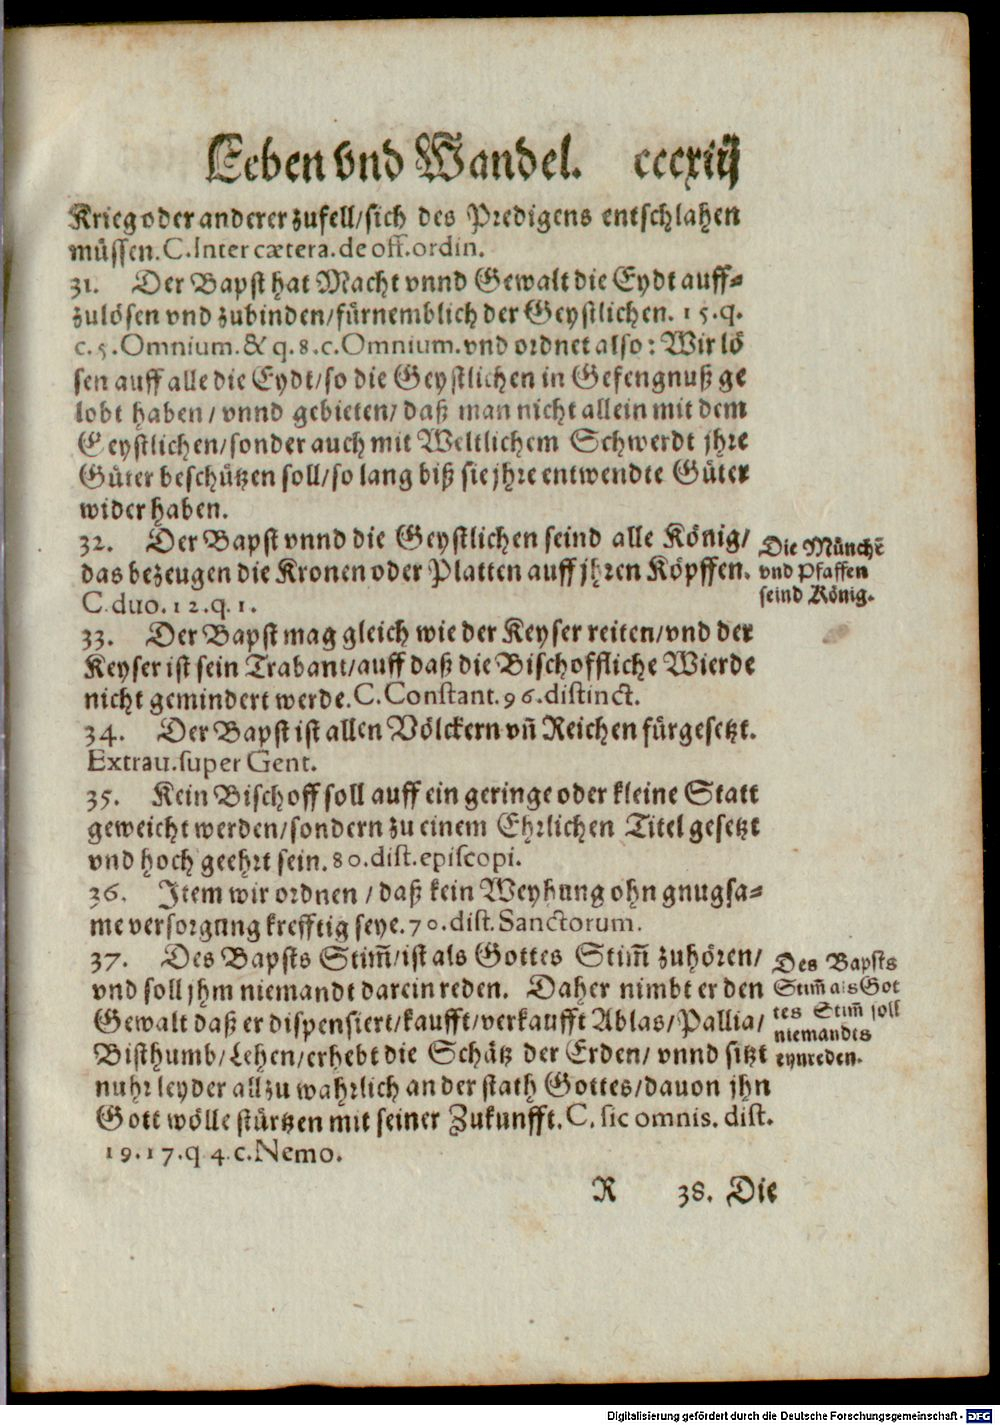 Leben vnd Wandel. cccxiij
Krieg oder anderer zufell/sich des Predigens entschlahen
müssen. C. Inter cætera. de off. ordin.
31. Der Bapst hat Macht vnnd Gewalt die Eydt auff-
zulösen vnd zubinden/fürnemblich der Geystlichen. 15. q.
c. 5. Omnium. & q. 8. c. Omnium. vnd ordnet also: Wir lö
sen auff alle die Eydt/so die Geystlichen in Gefengnuß ge
lobt haben/ vnnd gebieten/ daß man nicht allein mit dem
Geystlichen/sonder auch mit Weltlichem Schwerdt jhre
Güter beschützen soll/so lang biß sie jhre entwendte Güter
wider haben.
32. Der Bapst vnnd die Geystlichen seind alle König/
das bezeugen die Kronen oder Platten auff jhren Köpffen.
C. duo. 12. q. 1.
Die Münchē
vnd Pfaffen
seind König.
33. Der Bapst mag gleich wie der Keyser reiten/vnd der
Keyser ist sein Trabant/auff daß die Bischoffliche Wierde
nicht gemindert werde. C. Constant. 96. distinct.
34. Der Bapst ist allen Völckern vñ Reichen fürgesetzt.
Extrau. super Gent.
35. Kein Bischoff soll auff ein geringe oder kleine Statt
geweicht werden/sondern zu einem Ehrlichen Titel gesetzt
vnd hoch geehrt sein. 80. dist. episcopi.
36. Item wir ordnen / daß kein Weyhung ohn gnugsa-
me versorgung krefftig seye. 70. dist. Sanctorum.
37. Des Bapsts Stim̄/ist als Gottes Stim̄ zuhören/
vnd soll jhm niemandt darein reden. Daher nimbt er den
Gewalt daß er dispensiert/kaufft/verkaufft Ablas/Pallia/
Bisthumb/Lehen/erhebt die Schätz der Erden/ vnnd sitzt
nuhr leyder allzu wahrlich an der stath Gottes/dauon jhn
Gott wölle stürtzen mit seiner Zukunfft. C. sic omnis. dist.
19. 17. q 4. c. Nemo.
Des Bapsts
Stim̄ als Got
tes Stim̄ soll
niemandts
eynreden.
R 38. Die
Digitalisierung gefördert durch die Deutsche Forschungsgemeinschaft - DFG